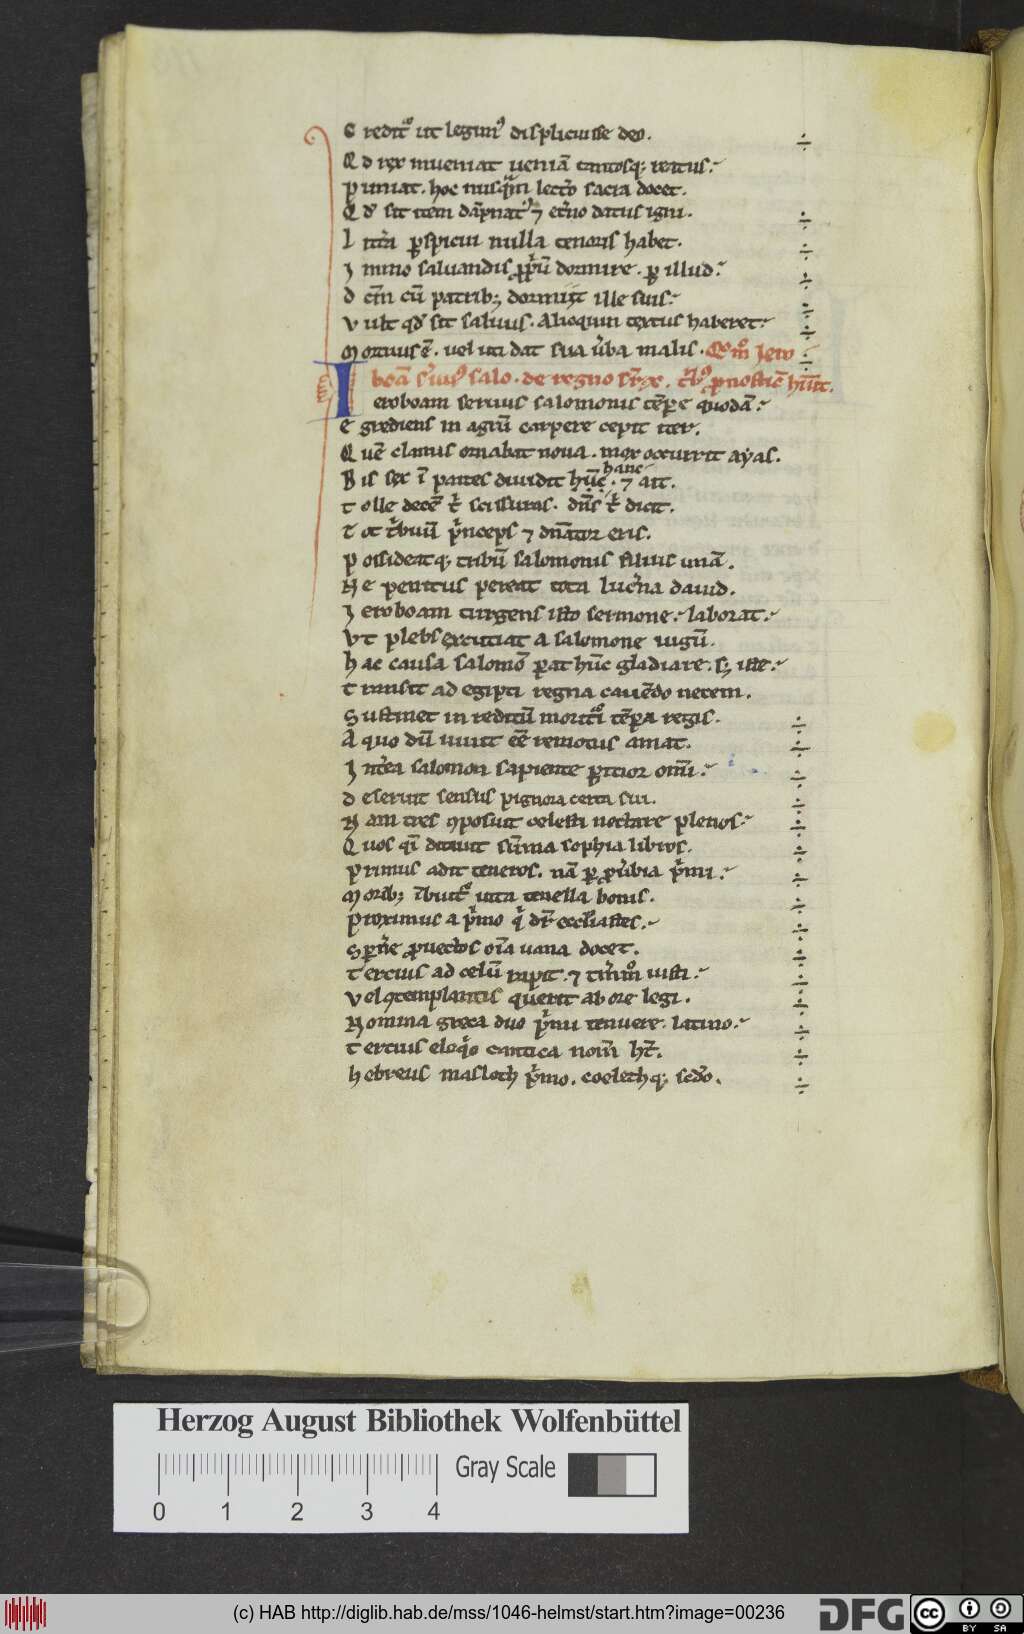 C redit᷒ ut legim᷒ displicuisse deo.
Q d rex inueniat ueniā tantosq; reatus
P uniat. hoc nusq̄m lectō sacra docet.
Q d̓ sit item dāpnat᷒ ⁊ et̓no datus igni.
I nt̓ra ꝑspicui nulla tenoris habet.
I mmo saluandis ꝓpͥū dormire. ꝑ illud
d cm̄ cū patrib; dormiit ille suis
V ult qd̓ sit saluus. Alioquin textus haberet
M ortuus ē. uel uti dat sua ūba malis. Qͦm̄ Iero
boā s̓uus salo. de regno s̓rge. pͥnosticē
Ieroboam seruus salomonis tēpͤe quodā
E grediens in agrū carpere cepit iter.
Q uē clamis ornabat noua. mox occurrit aẏas.
B is sex ī partes diuidit hūc hanc. ⁊ ait.
T olle decē tͥ scissuras. dn̄s tͥ dicit.
T ot tͥbuū pͥnceps ⁊ dn̄ator eris.
P ossideatq; tribū salomonis filius unā.
N e penitus pereat tota luc̓na dauid.
I eroboam turgens isto sermone laborat
V t plebs excutiat a salomone iugū.
h ac causa salomō ꝑat hūc gladiare. s; iste
T ransit ad egipti regna cauēdo necem.
S ustinet in reditū moritͦi tēpͣa regis.
A quo dū uiuit eē remotus amat.
I nt̓ea salomon sapiente ꝑitior om̄i
d eseruit sensus pignora certa sui.
N am tres ꝯposuit celesti nectare plenos
Q uos qͥ ditauit sūma sophia libros.
P rimus adit teneros. nā ꝑ ꝓūbia pͥmi
M orib; ībuitͬ uita tenella bonis.
P roximus a pͥmo qͥ dr̄ ecclīastes
S ꝑn̓e ꝓuectos oīa uana docet.
T ercius ad celū rapit ⁊ iusti
V el ꝯtemplantis querit ab ore legi.
N omina greca duo pͥmi tenuere. latino
T ercius eloqͦo cantica nom̄ hт̄.
h ebreus masloth pͥmo. coelethq; sc̄do.
Herzog August Bibliothek Wolfenbüttel
0 1 2 3 4
Gray Scale
(c) HAB http://diglib.hab.de/mss/1046-helmst/start.htm?image=00236
DFG
cc
BY SA